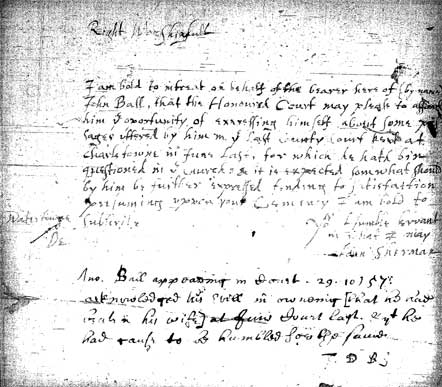 Right Worshipfull
I am bold to intreat on behalf of the bearer here of (by name
John Ball, that this Honoured Court may please to afford
him ye oportunity of expressing himself about some pas
sages uttered by him in ye last County Court kept at
Charlstowne in June Last, for which he hath bin
questioned in ye Church: & it is expected somewhat should
by him be further expressed tending to satisfaction
presuming upon your Clemency I am bold to
subscribe
Yor humble servant
in what I may
John Sherman
Watertowne
Jno. Ball appearing in Court. 29. 10 57:
acknowledged his evill in owneing [that he had
his wife] at June Court last. & yt he
had cause to be humbled for the same.
T D